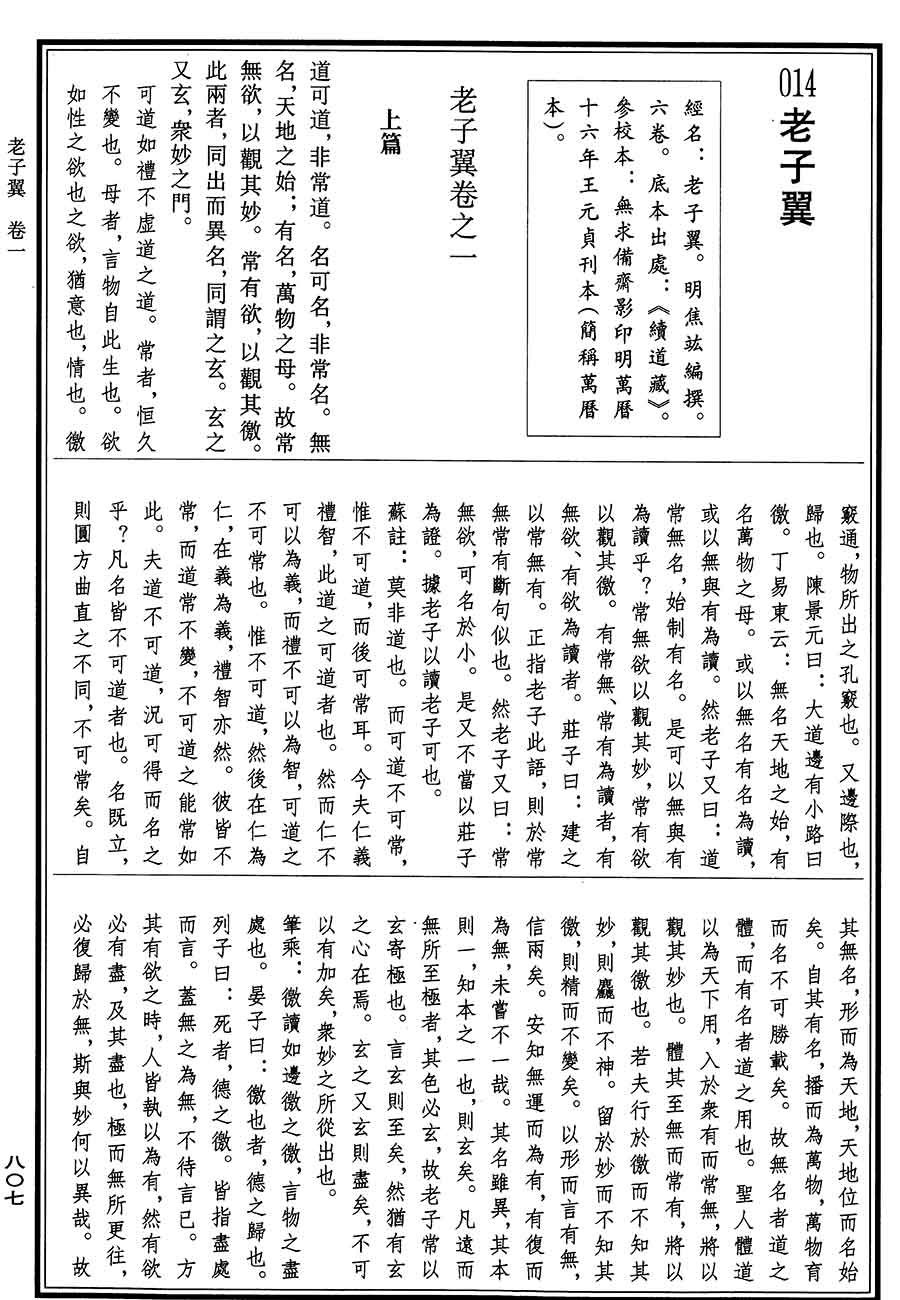 014老子翼
經名：老子翼。明焦竑編撰。
六卷。底本出處：《續道藏》。
參校本：無求備齋影印明萬曆
十六年王元貞刊本（簡稱萬曆
本）。
老子翼卷之一
上篇
道可道，非常道。名可名，非常名。無
名，天地之始；有名，萬物之母。故常
無欲，以觀其妙。常有欲，以觀其徼。
此兩者，同出而異名，同謂之玄。玄之
又玄，衆妙之門。
可道如禮不虛道之道。常者，恒久
不變也。母者，言物自此生也。欲
如性之欲也之欲，猶意也，情也。徼
竅通，物所出之孔竅也。又邊際也，
歸也。陳景元曰：大道邊有小路曰
徼。丁易東云：無名天地之始，有
名萬物之母。或以無名有名為讀，
或以無與有為讀。然老子又曰：道
常無名，始制有名。是可以無與有
為讀乎？常無欲以觀其妙，常有欲
以觀其徼。有常無、常有為讀者，有
無欲、有欲為讀者。莊子曰：建之
以常無有。正指老子此語，則於常
無常有斷句似也。然老子又曰：常
無欲，可名於小。是又不當以莊子
為證。據老子以讀老子可也。
蘇註：莫非道也。而可道不可常，
惟不可道，而後可常耳。今夫仁義
禮智，此道之可道者也。然而仁不
可以為義，而禮不可以為智，可道之
不可常也。惟不可道，然後在仁為
仁，在義為義，禮智亦然。彼皆不
常，而道常不變，不可道之能常如
此。夫道不可道，況可得而名之
乎？凡名皆不可道者也。名既立，
則圓方曲直之不同，不可常矣。自
其無名，形而為天地，天地位而名始
矣。自其有名，播而為萬物，萬物育
而名不可勝載矣。故無名者道之
體，而有名者道之用也。聖人體道
以為天下用，入於衆有而常無，將以
觀其妙也。體其至無而常有，將以
觀其徼也。若夫行於徼而不知其
妙，則麤而不神。留於妙而不知其
徼，則精而不變矣。以形而言有無，
信兩矣。安知無運而為有，有復而
為無，未嘗不一哉。其名雖異，其本
則一，知本之一也，則玄矣。凡遠而
無所至極者，其色必玄，故老子常以
玄寄極也。言玄則至矣，然猶有玄
之心在焉。玄之又玄則盡矣，不可
以有加矣，衆妙之所從出也。
筆乘：徼讀如邊徼之徼，言物之盡
處也。晏子曰：徼也者，德之歸也。
列子曰：死者，德之徼。皆指盡處
而言。蓋無之為無，不待言已。方
其有欲之時，人皆執以為有，然有欲
必有盡，及其盡也，極而無所更往，
必復歸於無，斯與妙何以異哉。故
老子翼　卷一
八〇七